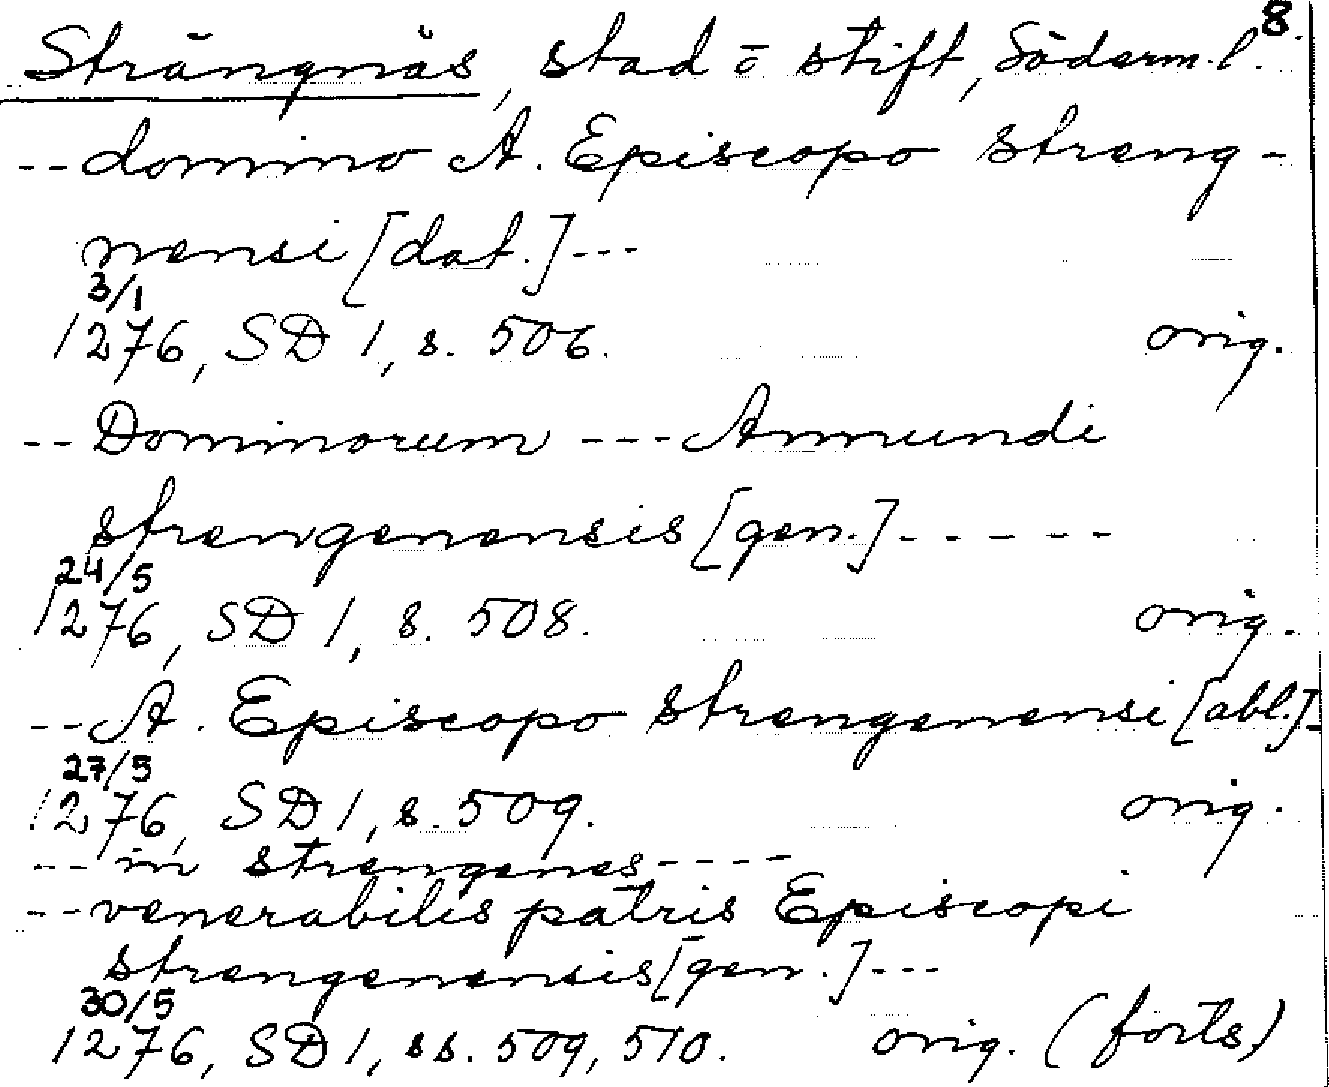 8.
Strängnäs, stad o stift, Söderm.l.
--domino A. Episcopo Streng-
nensi [dat.]---
3/1
1276, SD 1, s. 506. orig.
--Dominorum --- Anmundi
strengenensis [gen.]-----
24/5
1276, SD 1, s. 508. orig.
--A. Episcopo strengenensi [abl.]-
27/5
1276, SD 1, s. 509. orig.
--in strengenes----
--venerabilis patris Episcopi
strengenensis [gen.]---
30/5
1276, SD 1, ss. 509, 510. orig. (forts)